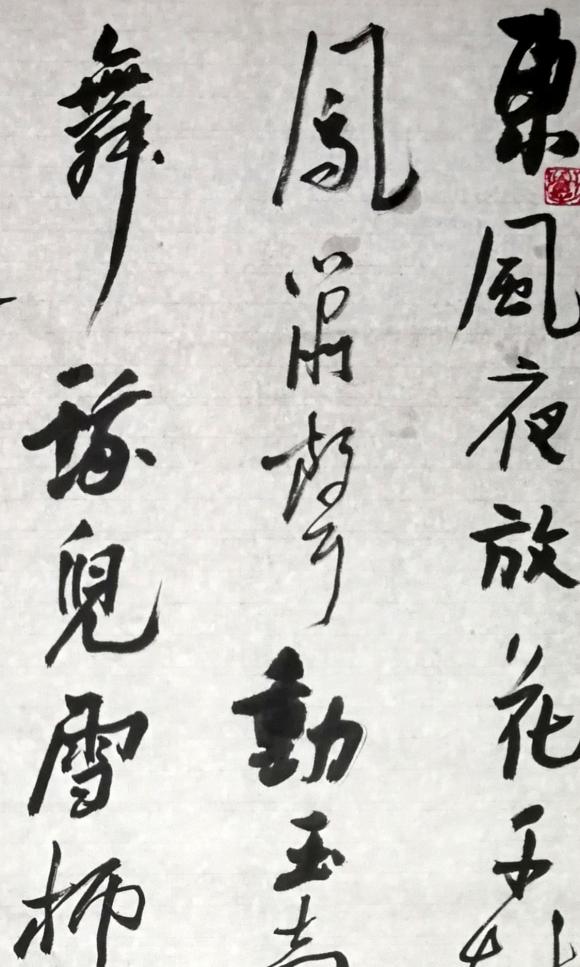 東風夜放花千樹
鳳簫聲動玉壺
舞蛾兒雪柳